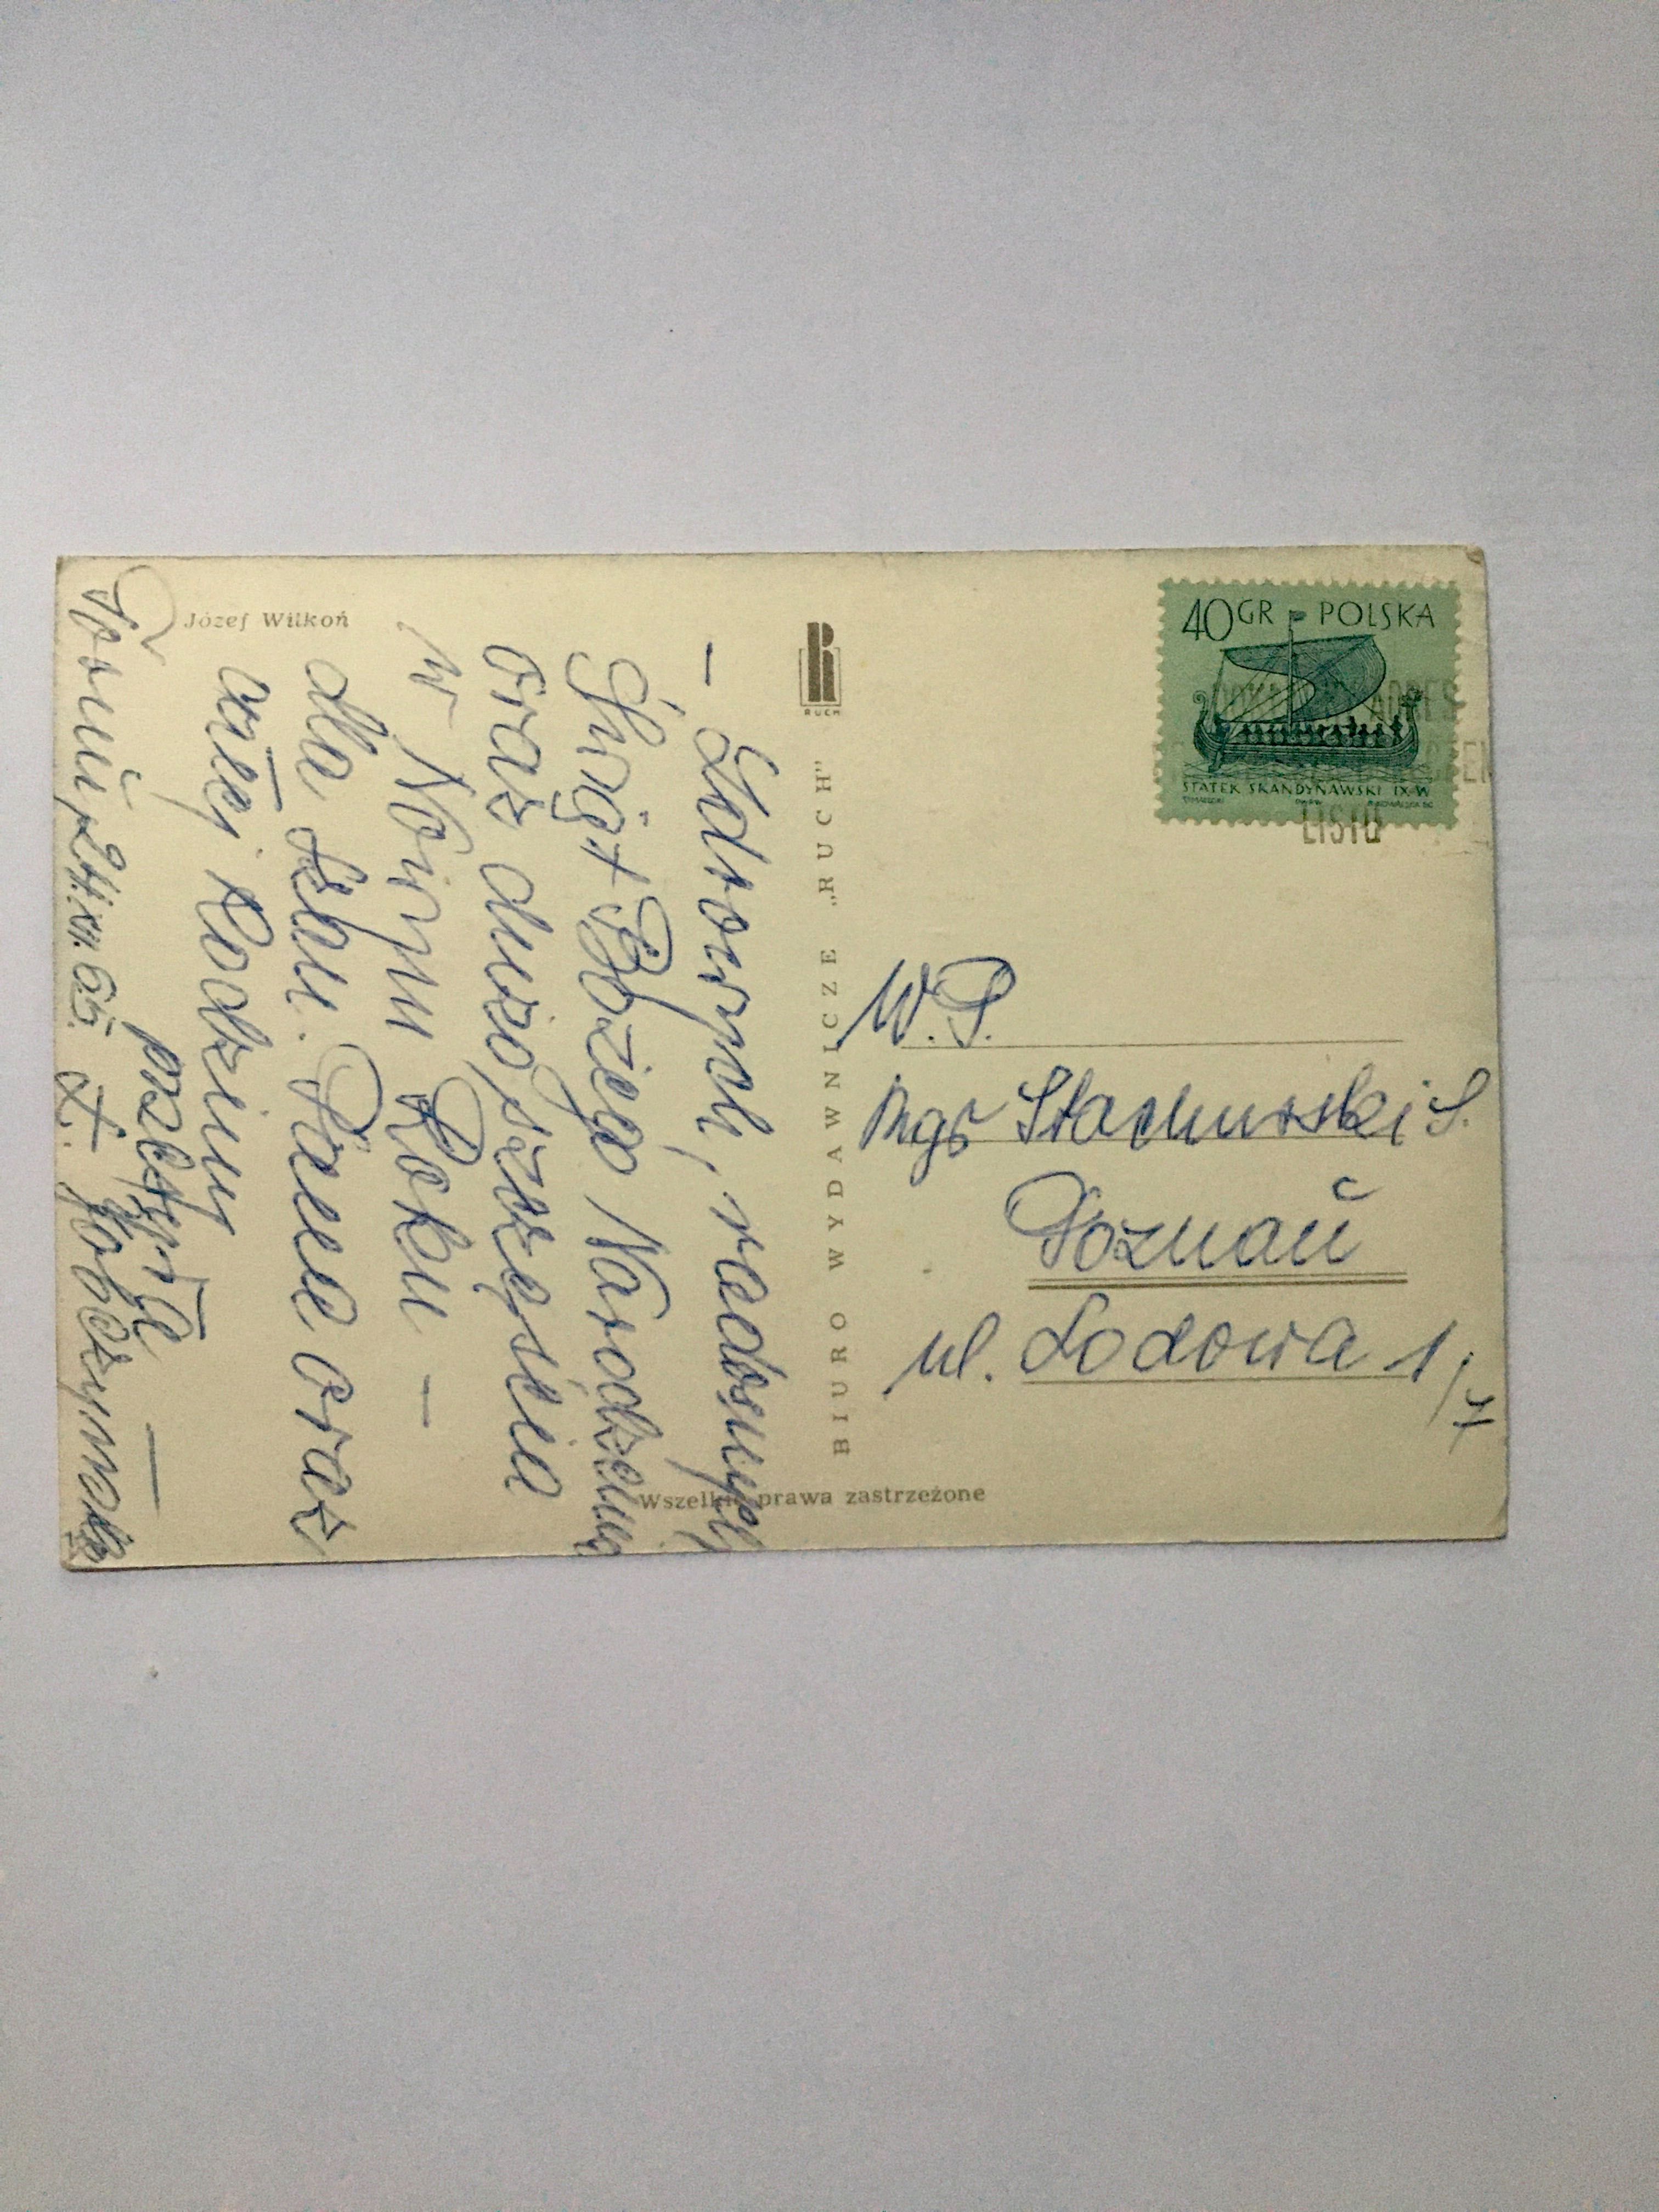 Józef Wilkoń
- Zdrowych, radosnych
Świąt Bożego Narodzenia
oraz dużo szczęścia
w Nowym Roku -
dla Sz. Pana oraz
całej Rodziny
przesyła
Toruń, 24.XII.65.
BIURO WYDAWNICZE „RUCH"
RUCH
Wszelkie prawa zastrzeżone
40GR POLSKA
STATEK SKANDYNAWSKI IX W
ADRES
LISTU
W.P.
Mgr Stachurski S.
Poznań
ul. Lodowa 1/7